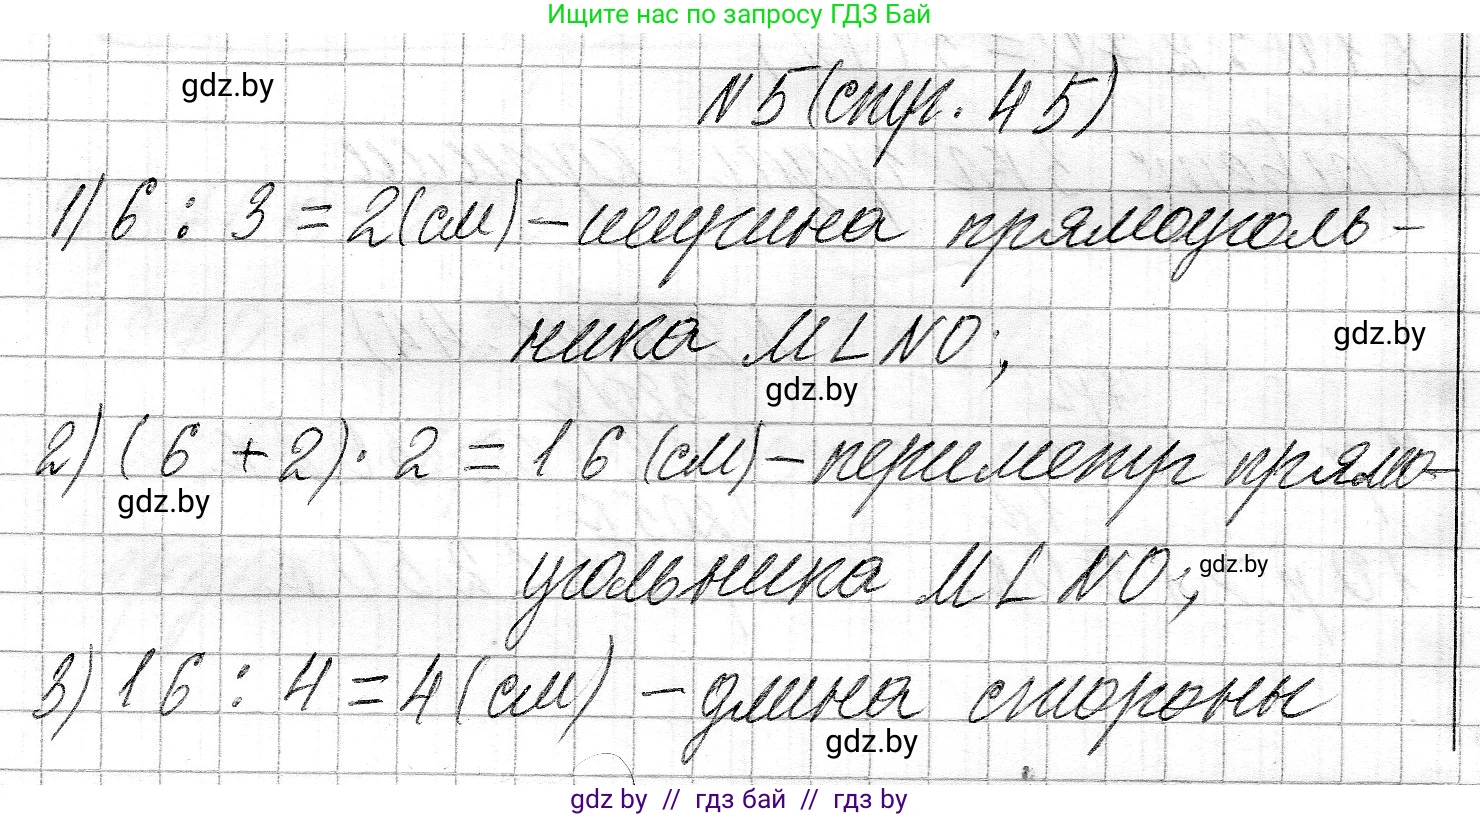 Ищите нас по запросу ГДЗ Бай
gdz.by
N 5 (стр. 45)
1) 6 : 3 = 2 (см) – ширина прямоуголь-
ника MLNO;
gdz.by
gdz.by
2) (6 + 2) · 2 = 16 (см) – периметр прямо-
gdz.by
угольника MLNO;
gdz.by
3) 16 : 4 = 4 (см) – длина стороны
gdz.by
gdz by // гдз бай // гдз by